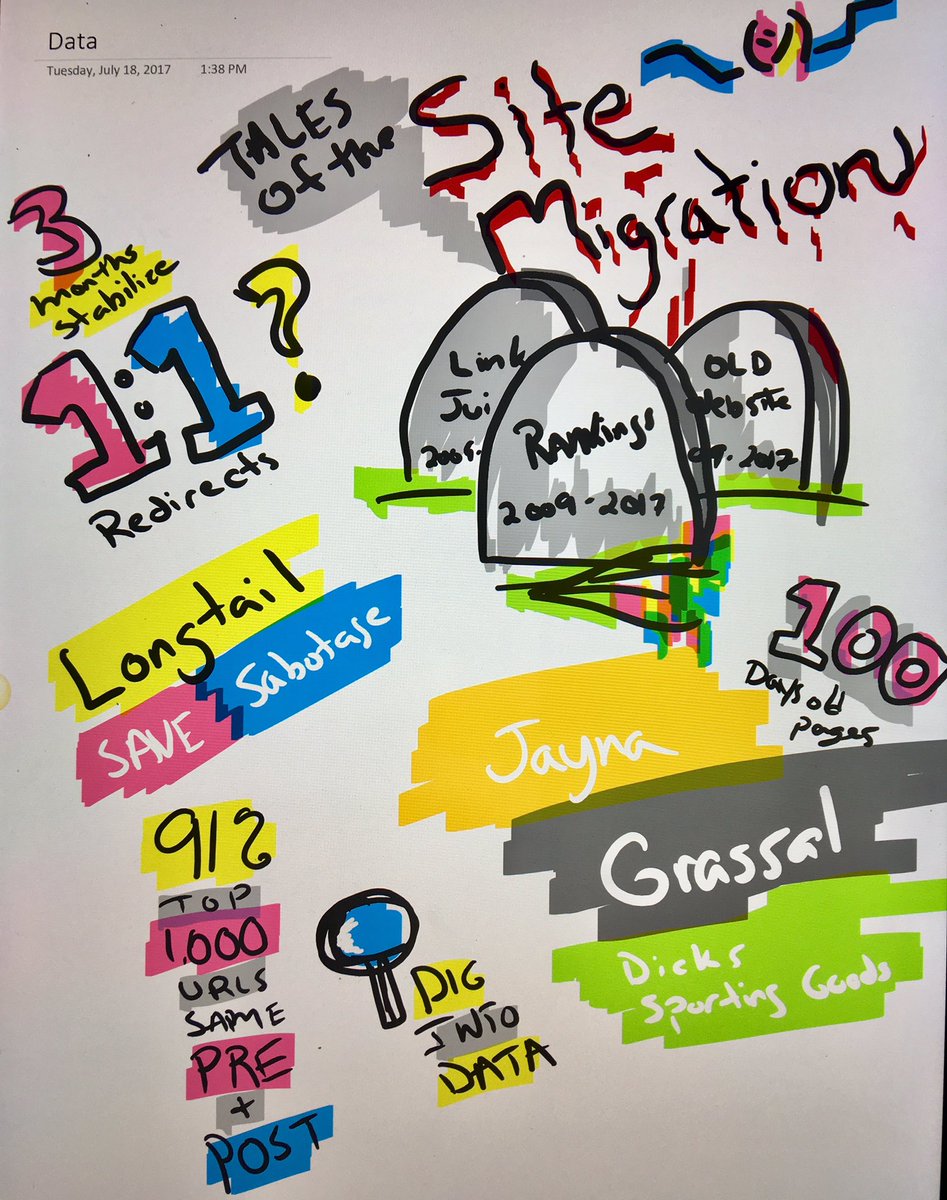 Data
Tuesday, July 18, 2017 1:38 PM
TALES
of the
Site
Migration
3
months
stabilize
1:1?
Redirects
Link
Jui
2009-
RANKings
2009-2017
OLD
Website
2017
Longtail
SAVE Sabotage
100
Days old
pages
Jayna
Grassal
Dicks
Sporting Goods
912
TOP
1,000
URLS
SAME
PRE
+
POST
DIG
INTO
DATA